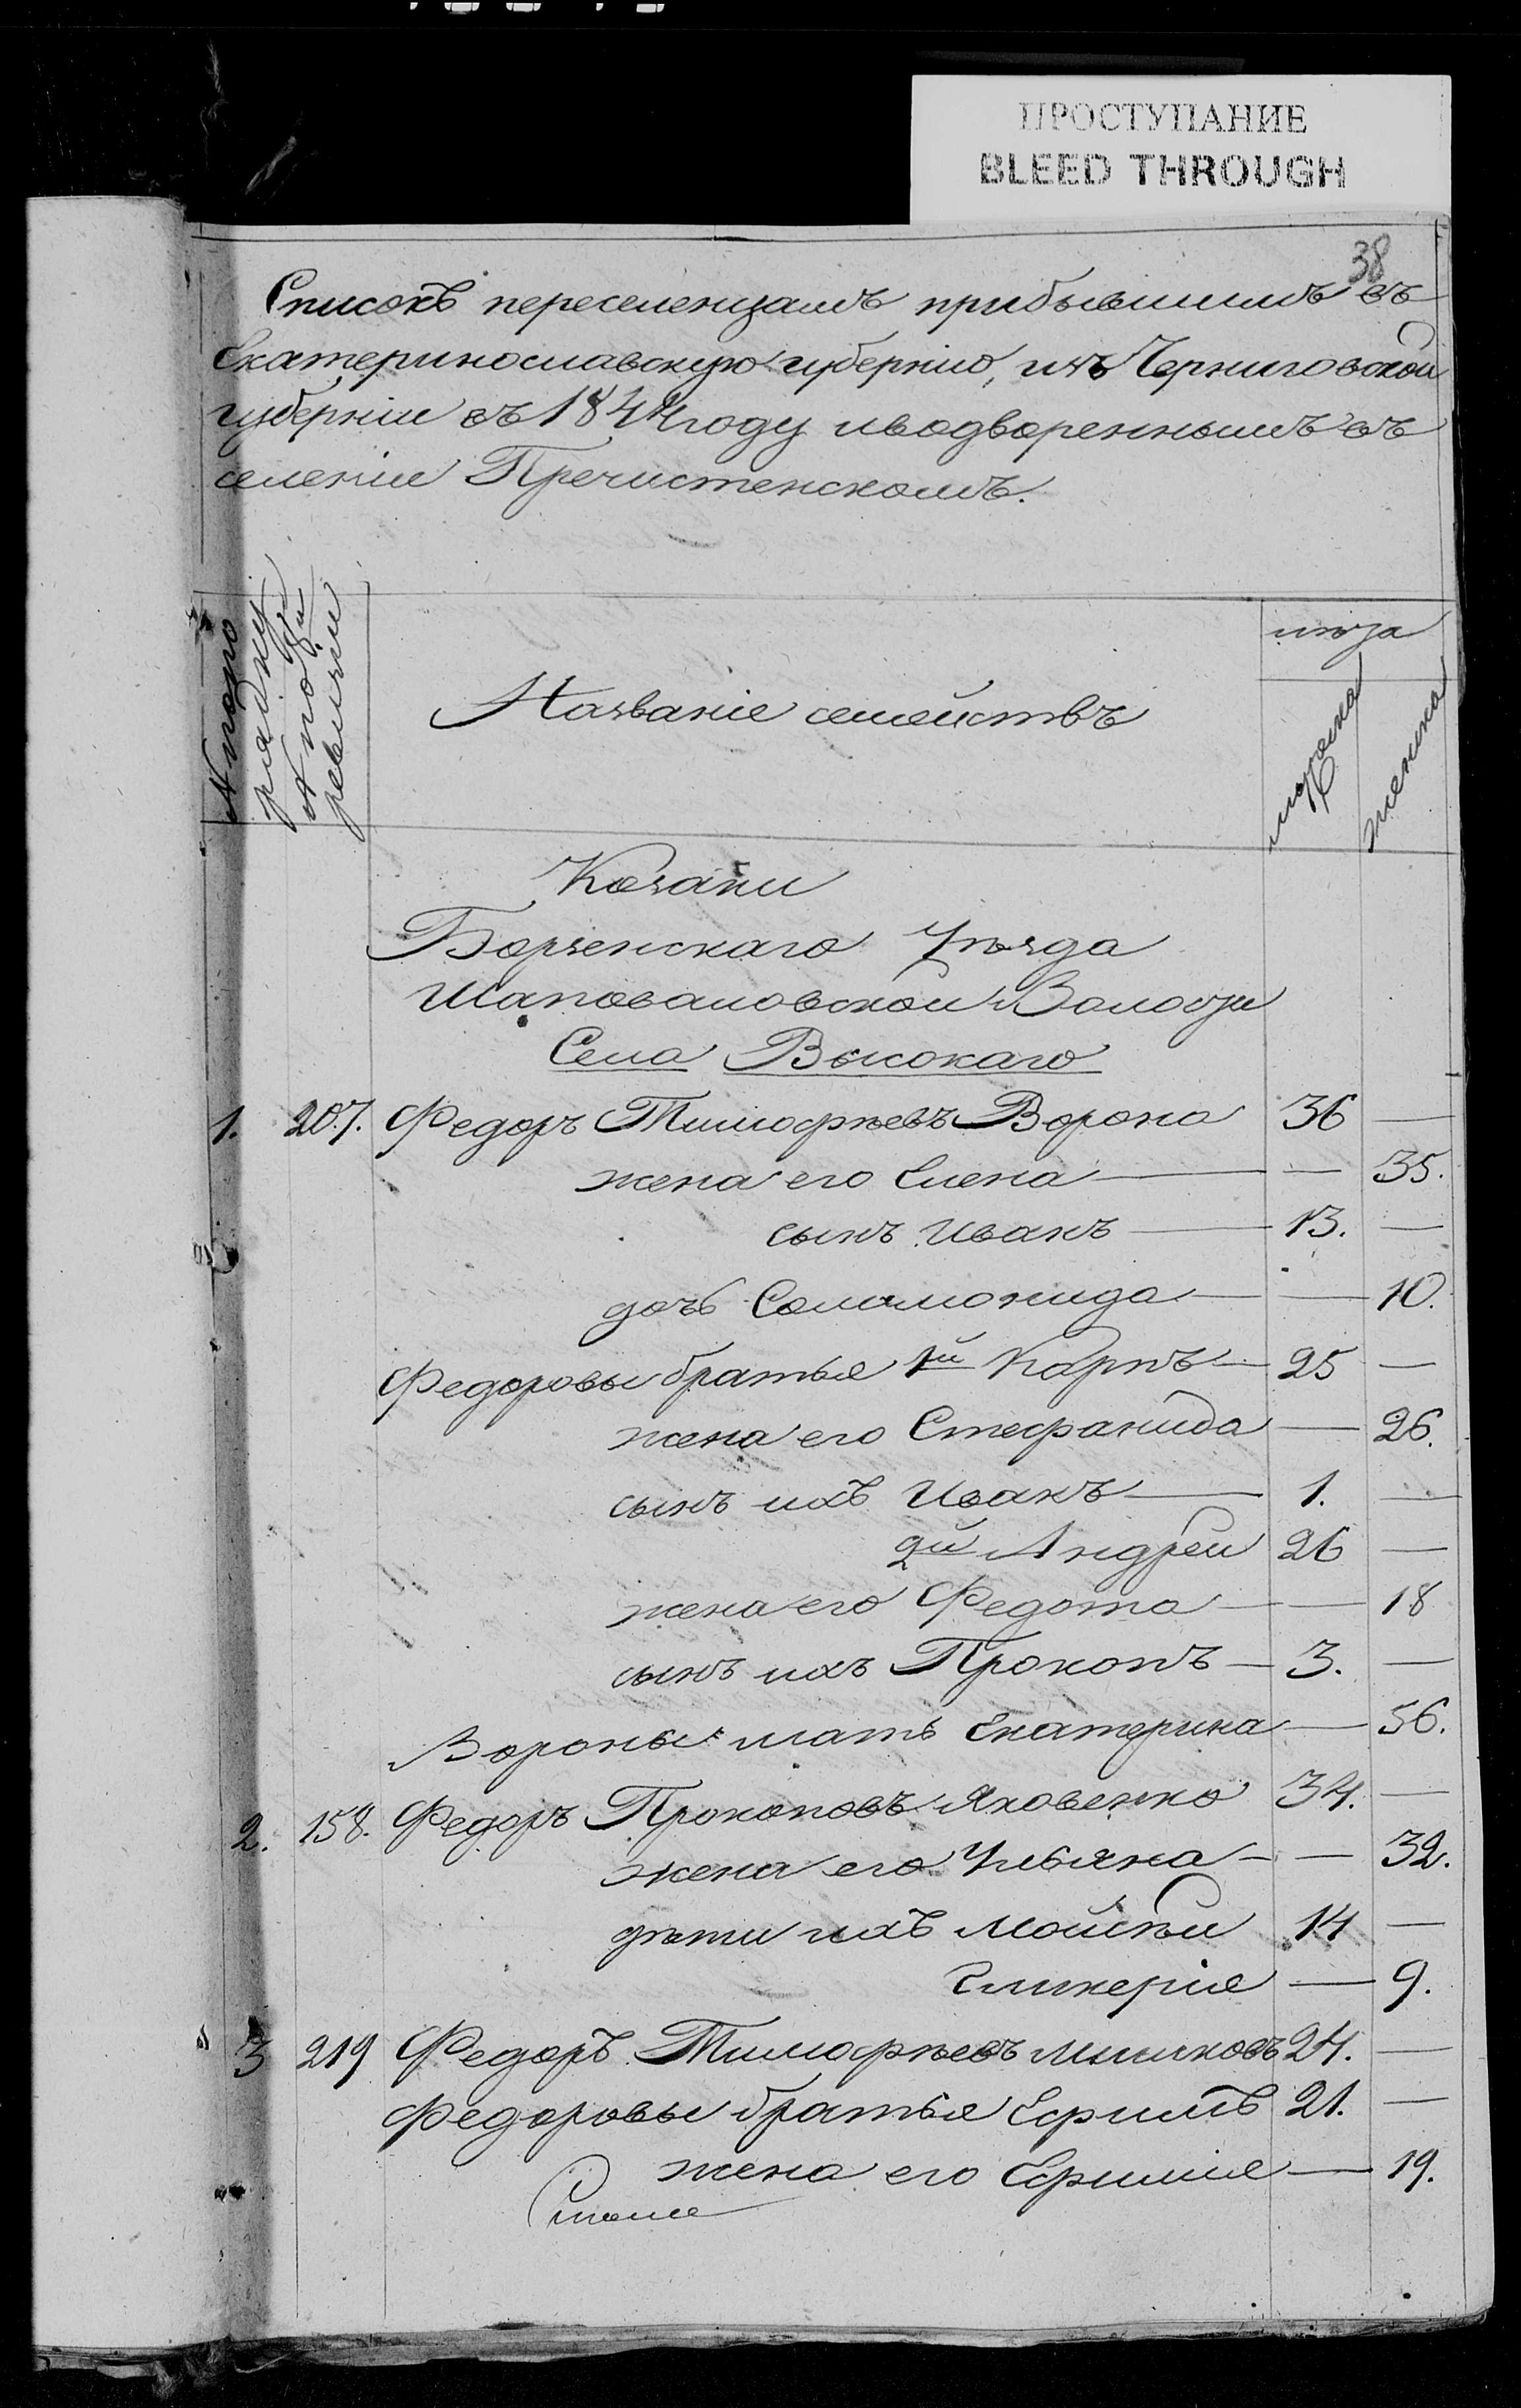 ПРОСТУПАНИЕ
BLEED THROUGH
38
Списокъ переселенцамъ прибывшимъ въ
Екатеринославскую губернію, изъ Черниговской
губерніи въ 1844 году и водвореннымъ въ
селеніи Пречистенскомъ.
№ по по
рядку
№ по 8й
ревизіи
Названіе семействъ
лѣта
мужска
женска
Козаки
Борзенскаго Уѣзда
Шаповаловской Волости
Села Высокаго
1. 207. Федоръ Тимофѣевъ Ворона 36 —
жена его Елена — — 35.
сынъ Иванъ — 13. —
дочь Соломонида — — 10.
Федоровы братья 1й Карпъ — 25 —
жена его Стефанида — 26.
сынъ ихъ Иванъ — 1. —
2й Андрей 26 —
жена его Федота — — 18
сынъ ихъ Прокопъ — 3. —
Вороны мать Екатерина — 56.
2. 158. Федоръ Прокоповъ Яковенко 34. —
жена его Ульяна — — 32.
дѣти ихъ Мойсѣй 14 —
Гликерія — 9.
3 219 Федоръ Тимофѣевъ 24. —
Федоровы братья Ефимъ 21. —
жена его Ефимія — 19.